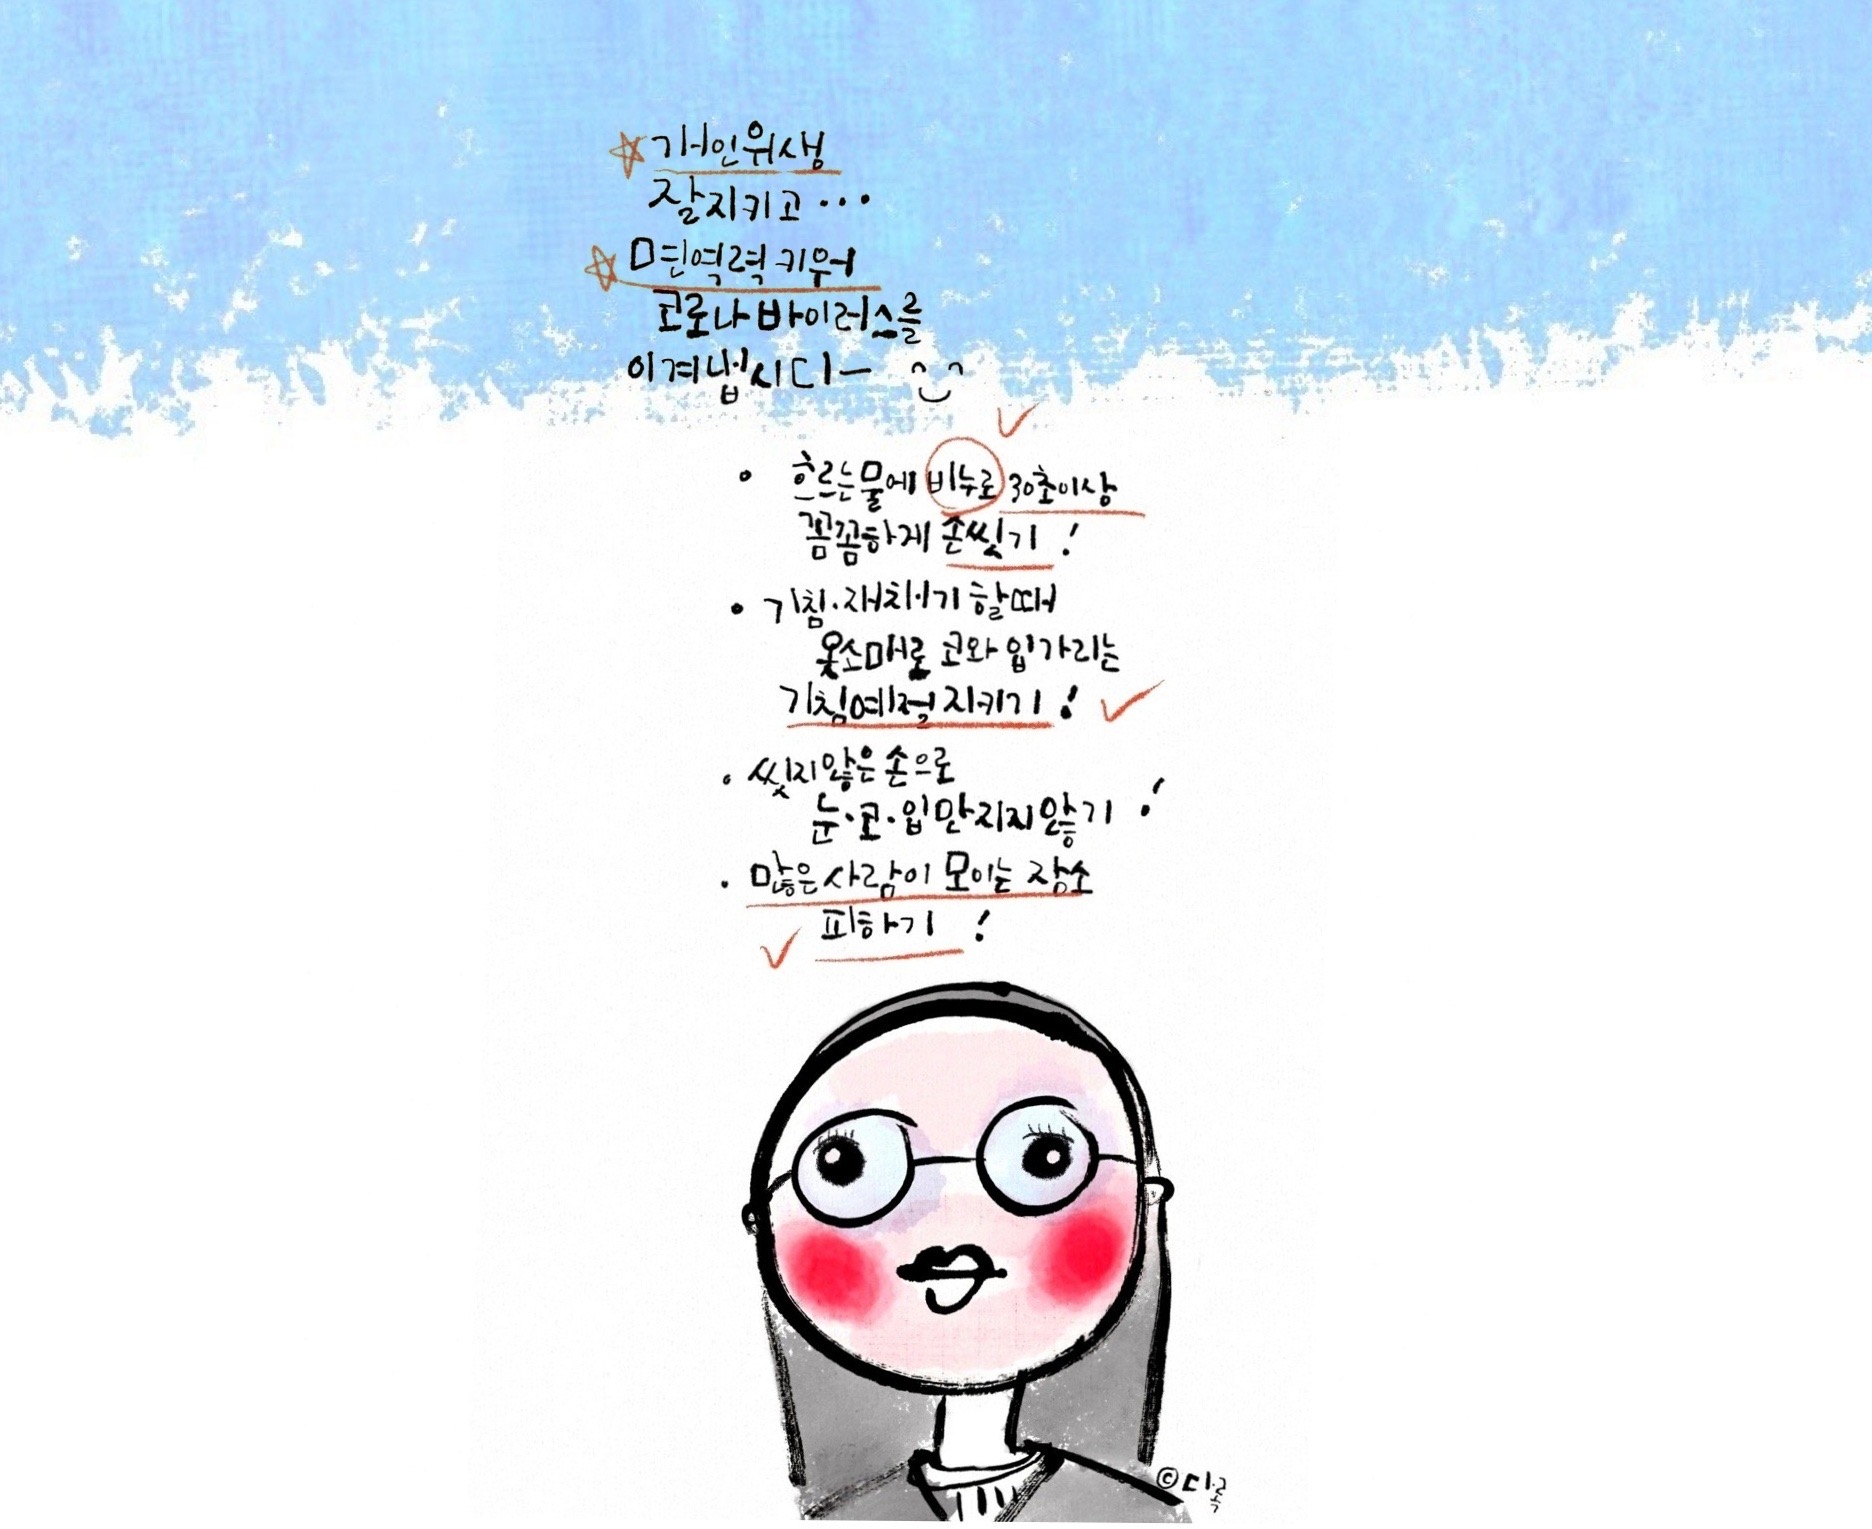 개인위생
잘지키고...
면역력 키워
코로나바이러스를
이겨냅시다-
• 흐르는물에 비누로 30초이상
꼼꼼하게 손씻기!
• 기침·재채기 할때
옷소매로 코와 입가리는
기침예절지키기!
• 씻지않은 손으로
눈·코·입만지지않기!
• 많은 사람이 모이는 장소
피하기!